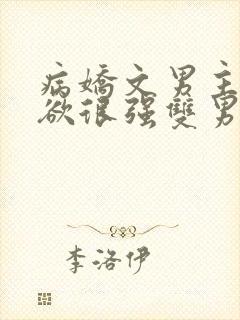 病嬌文男主
欲很强雙男
李洛伊